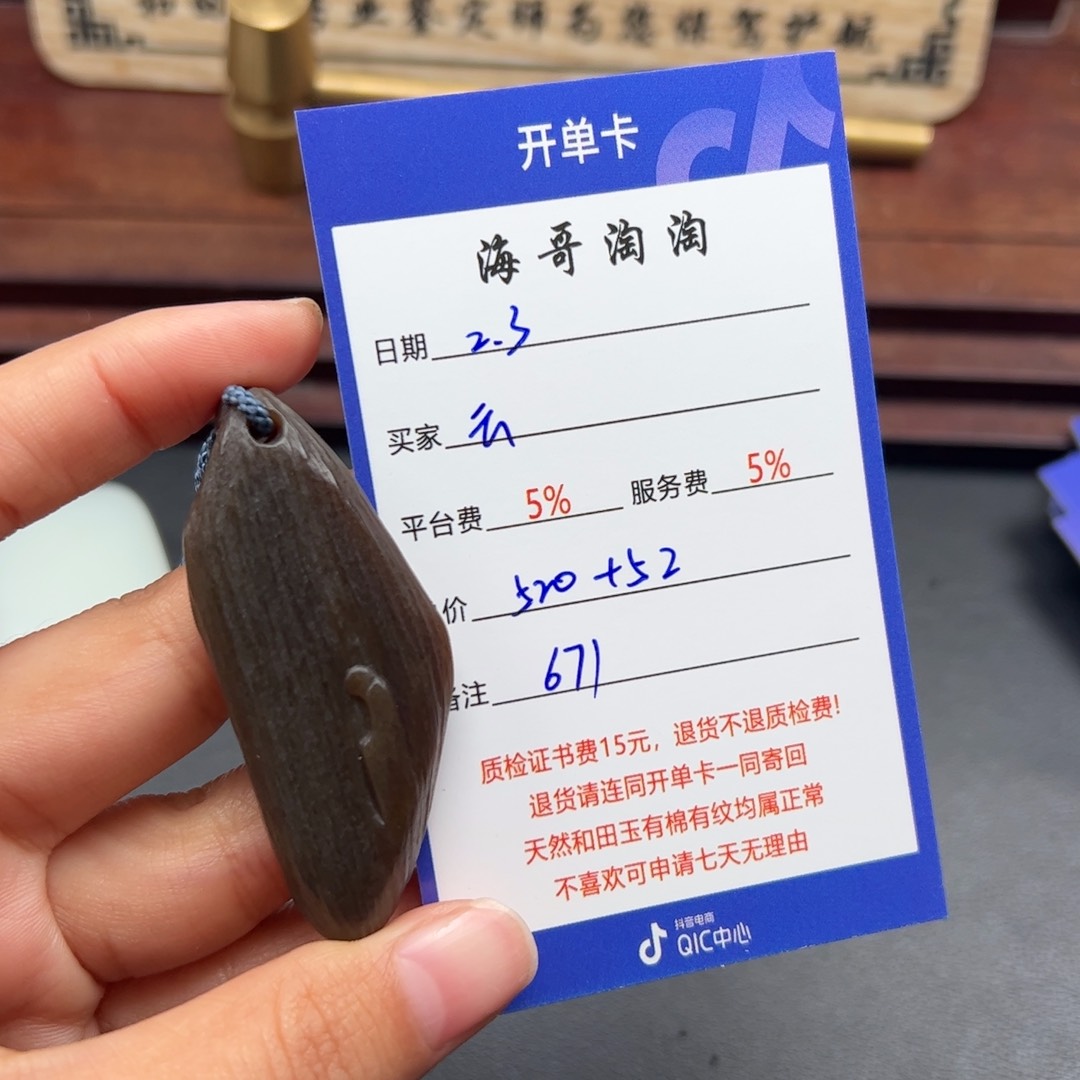 业鉴定师为您保驾护航
开单卡
海哥淘淘
日期 2.3
买家 云
平台费 5% 服务费 5%
价 520+52
备注 671
质检证书费15元，退货不退质检费！
退货请连同开单卡一同寄回
天然和田玉有棉有纹均属正常
不喜欢可申请七天无理由
抖音电商
QIC中心